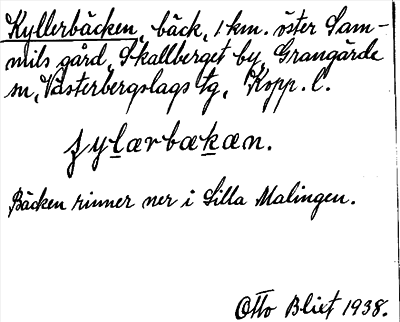 Kyllerbäcken, bäck, 1 km. öster Sam-
mils gård, Skallberget by, Grangärde
sn, Västerbergslags tg, Kopp. l.
ȝylærbækæn.
Bäcken rinner ner i Lilla Malingen.
Otto Blixt 1938.